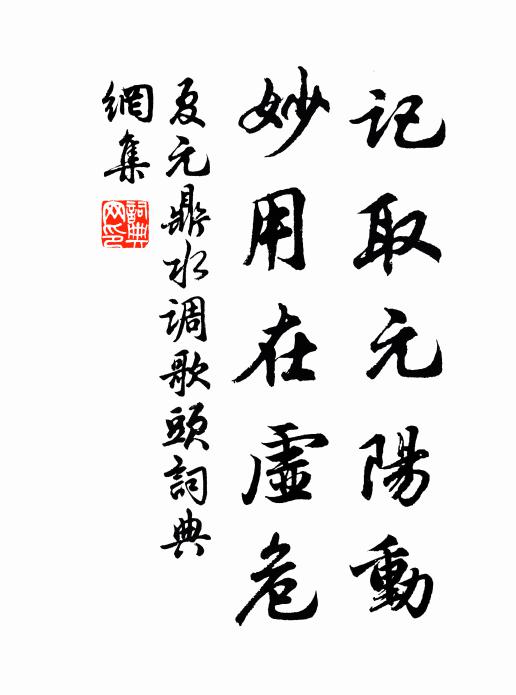 記取元陽動
妙用在虛危
夏元鼎水調歌頭詞典
網集
詞典
网印